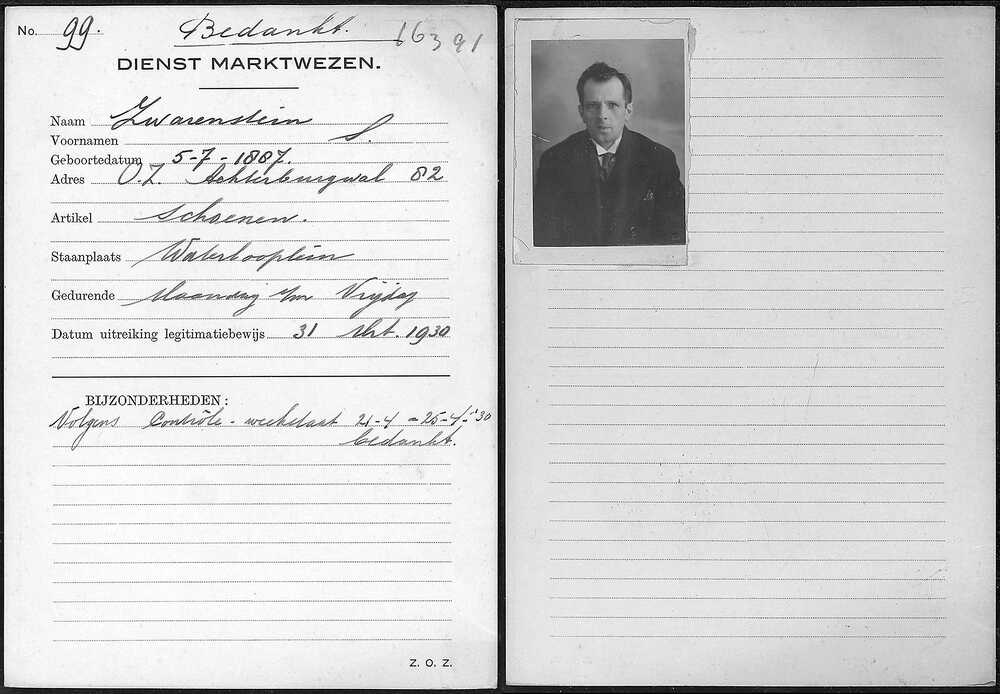 No. 99. Bedankt. 16391
DIENST MARKTWEZEN.
Naam Zwarenstein
Voornamen S.
Geboortedatum 5-7-1887.
Adres O.Z. Achterburgwal 82
Artikel Schoenen.
Staanplaats Waterlooplein
Gedurende Maandag t/m Vrijdag
Datum uitreiking legitimatiebewijs 31 Mrt. 1930
BIJZONDERHEDEN:
Volgens Contrôle-weekstaat 21-4 = 25-4-'30
bedankt.
Z. O. Z.